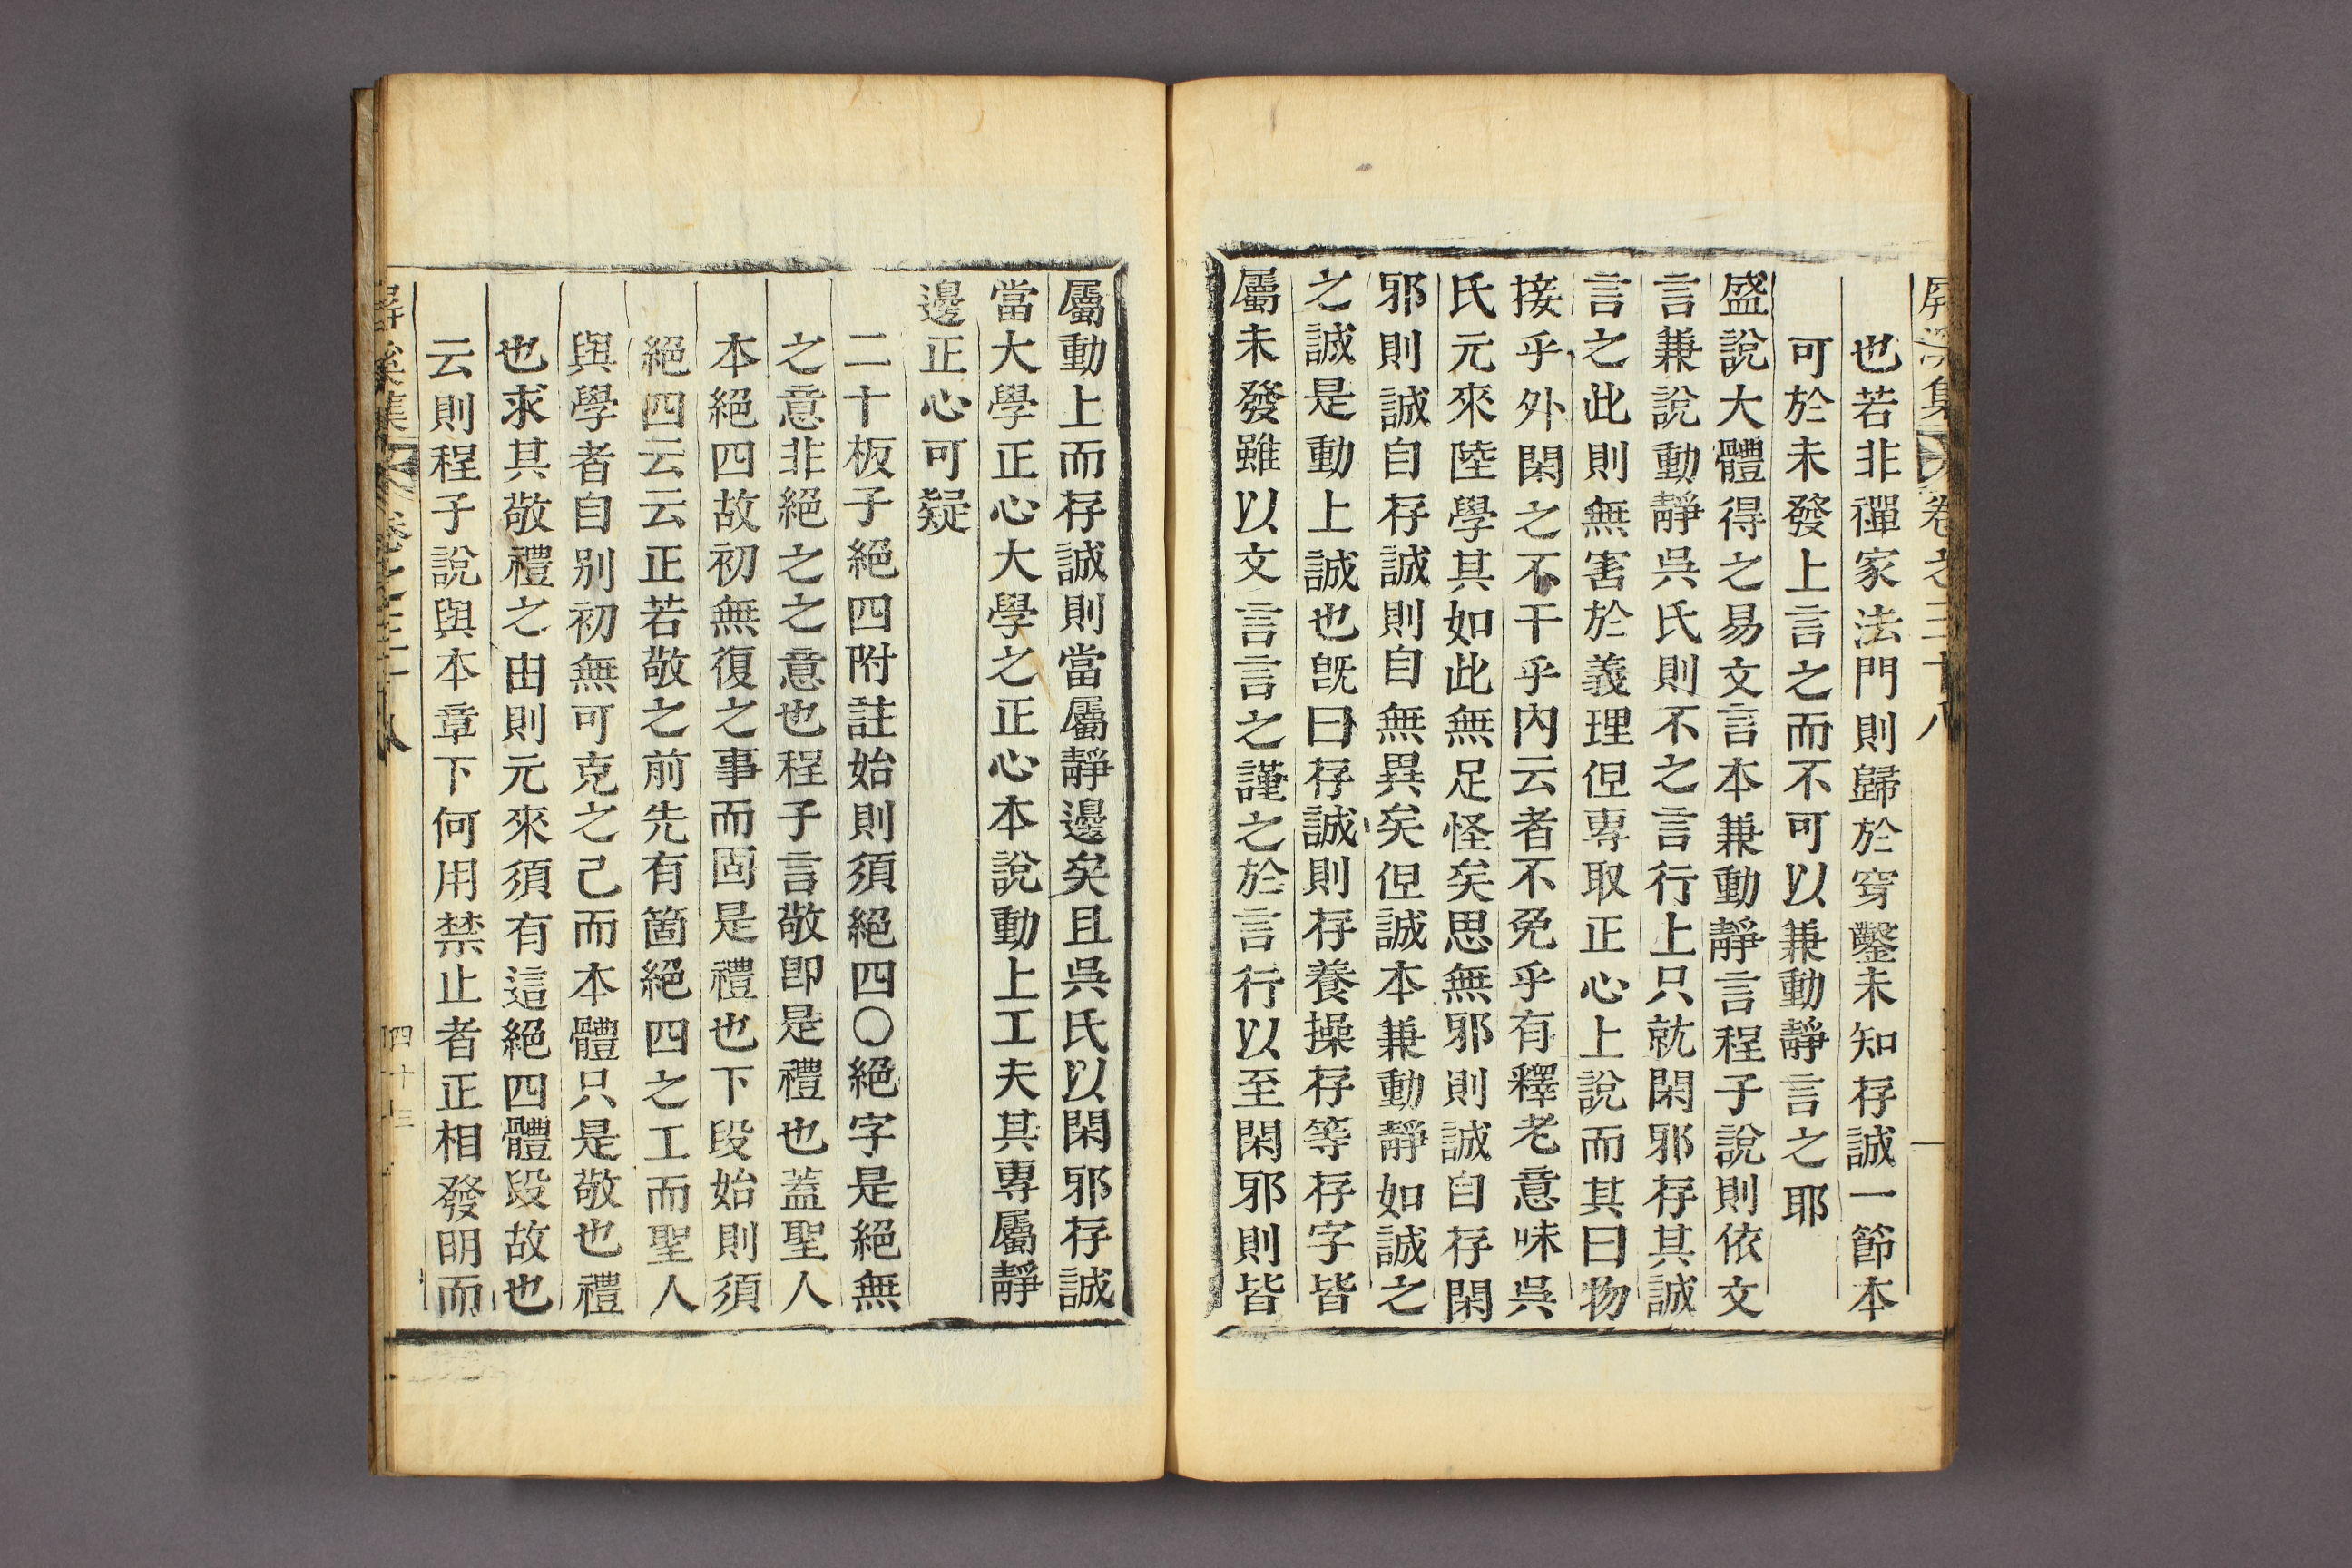 屛溪集 卷之三十八
也若非禪家法門則歸於穿鑿未知存誠一節本
可於未發上言之而不可以兼動靜言之耶
盛說大體得之易文言本兼動靜言程子說則依文
言兼說動靜吳氏則不之言行上只就閑邪存其誠
言之此則無害於義理但專取正心上說而其曰物
接乎外閑之不干乎內云者不免乎有釋老意味吳
氏元來陸學其如此無足怪矣思無邪則誠自存閑
邪則誠自存誠則自無異矣但誠本兼動靜如誠之
之誠是動上誠也旣曰存誠則存養操存等存字皆
屬未發雖以文言言之謹之於言行以至閑邪則皆
屬動上而存誠則當屬靜邊矣且吳氏以閑邪存誠
當大學正心大學之正心本說動上工夫其專屬靜
邊正心可疑
二十板子絕四附註始則須絕四〇絕字是絕無
之意非絕之之意也程子言敬卽是禮也蓋聖人
本絕四故初無復之事而固是禮也下段始則須
絕四云云正若敬之前先有箇絕四之工而聖人
與學者自別初無可克之己而本體只是敬也禮
也求其敬禮之由則元來須有這絕四體段故也
云則程子說與本章下何用禁止者正相發明而
屛溪集 卷之三十八 四十三